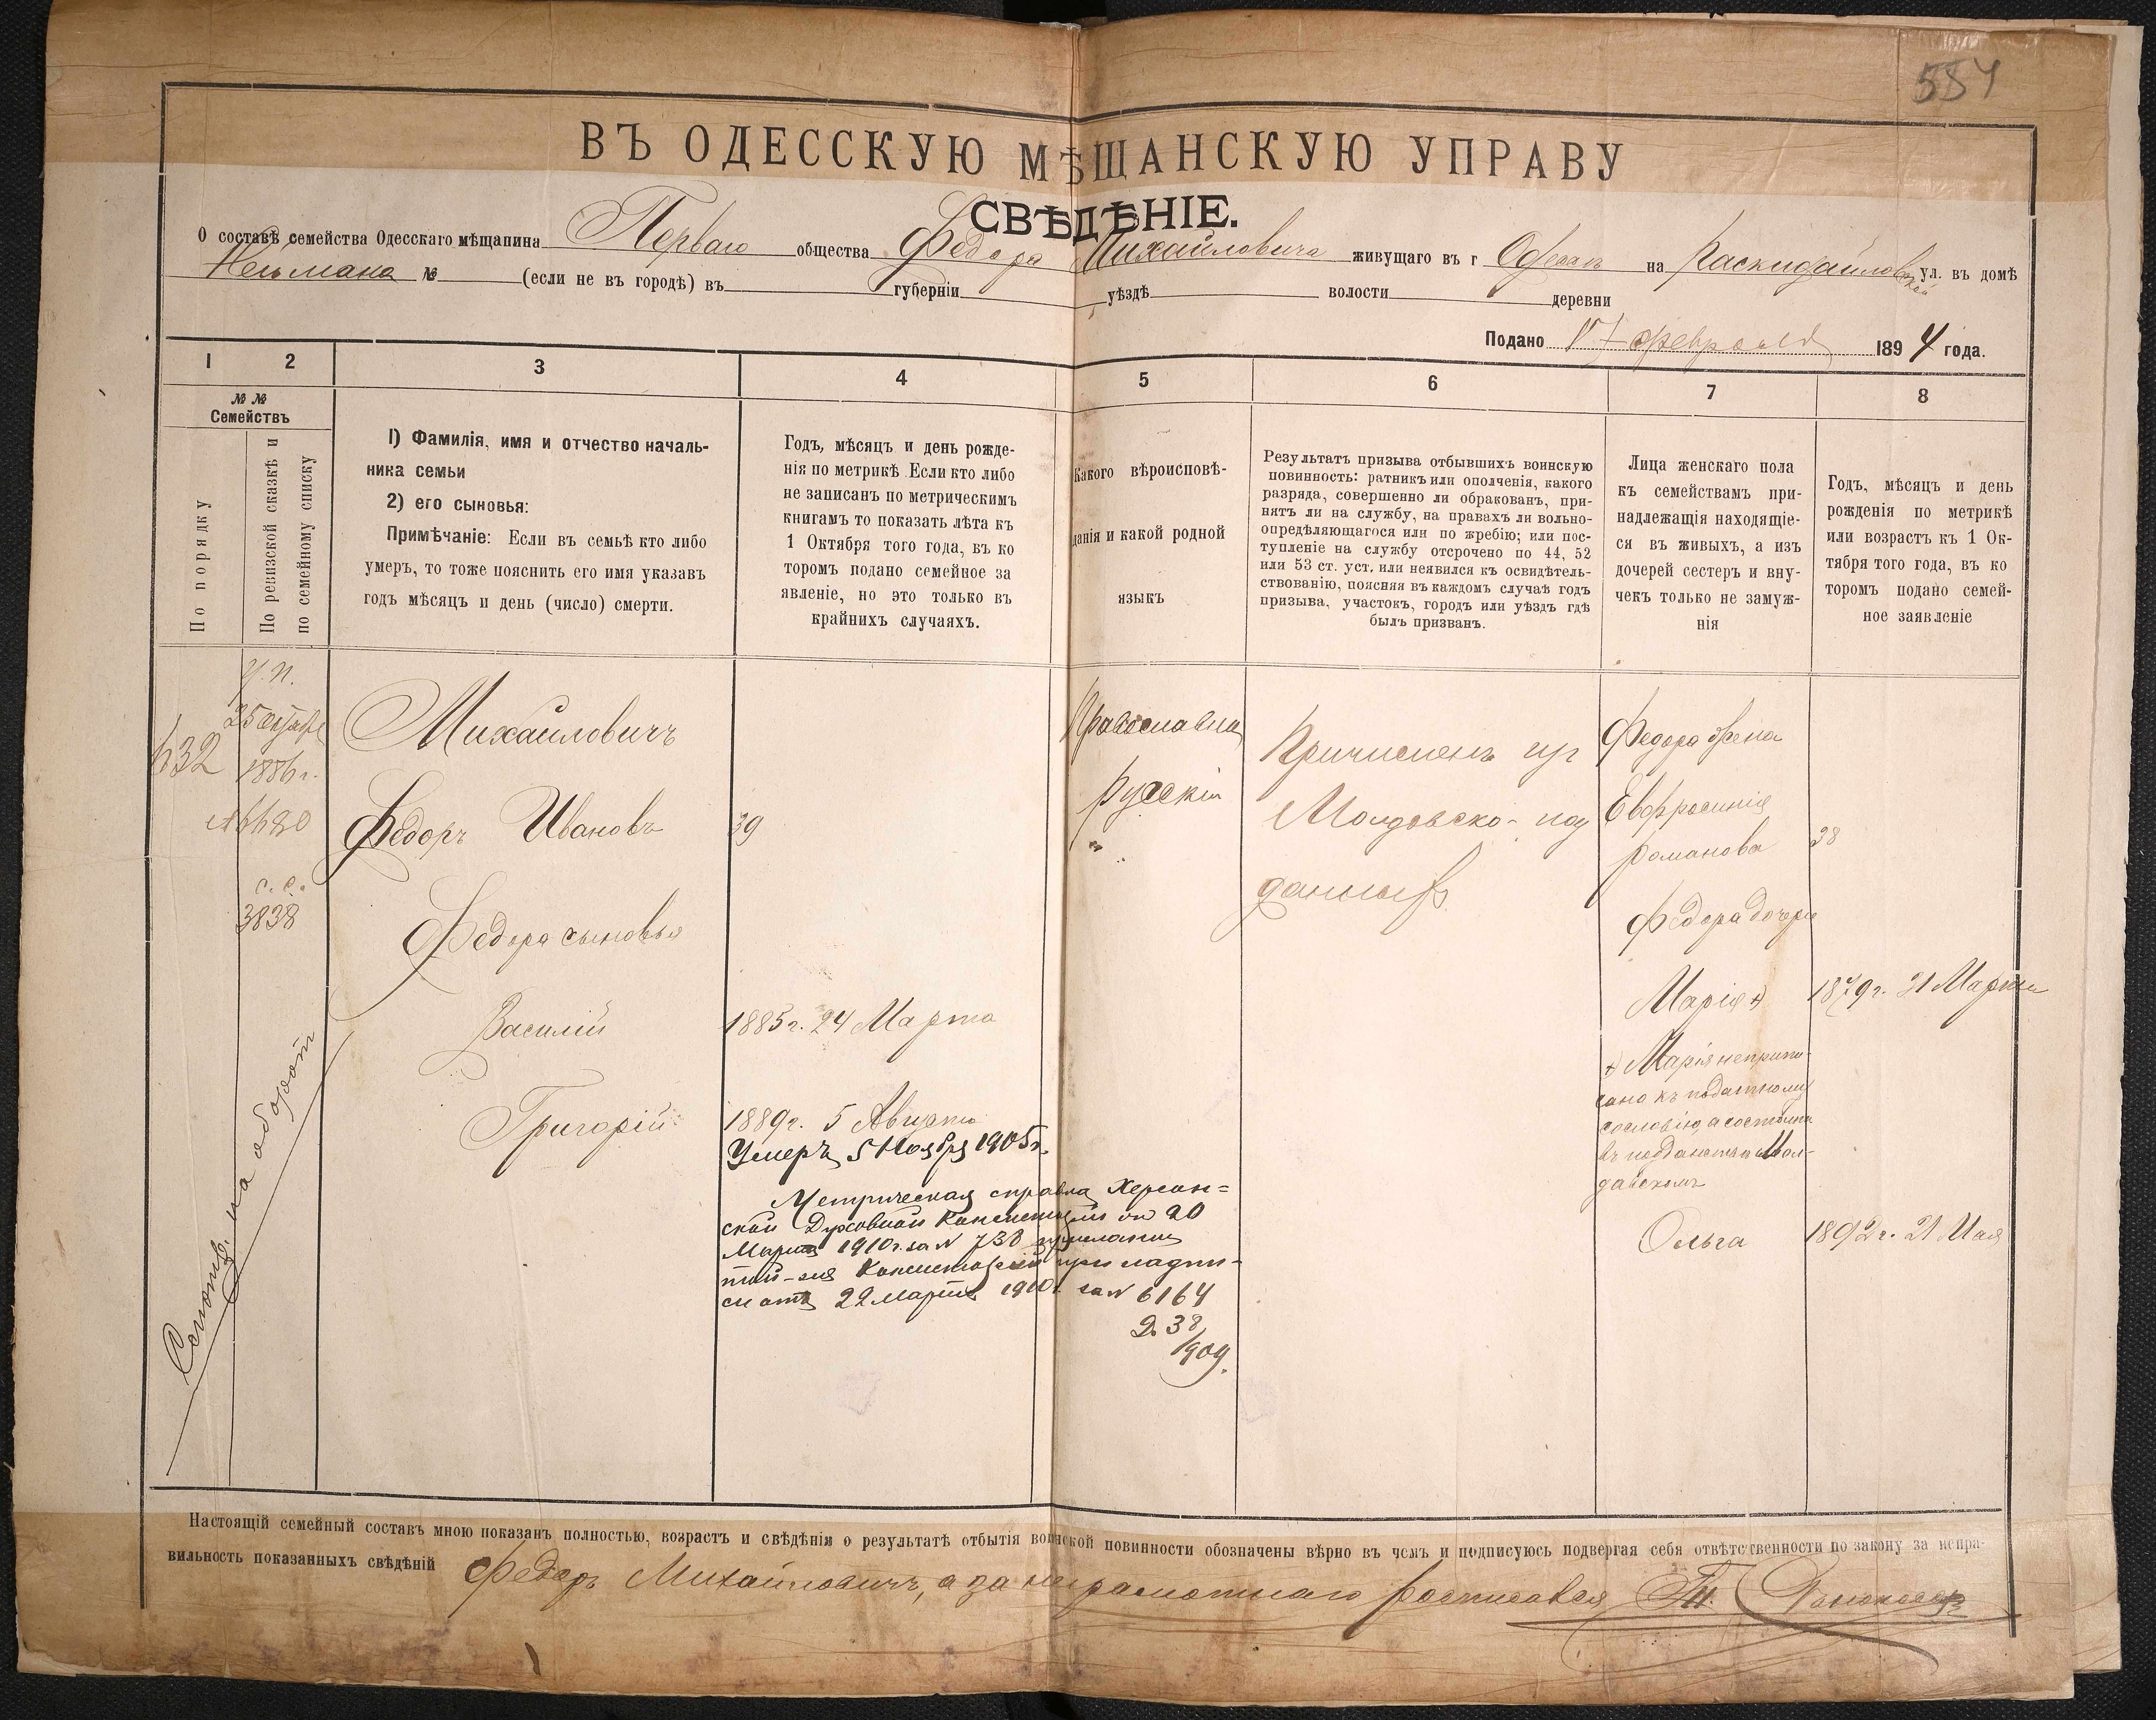 554
ВЪ ОДЕССКУЮ МѢЩАНСКУЮ УПРАВУ
СВѢДѢНІЕ.
О составѣ семейства Одесскаго мѣщанина Перваго общества Федора Михайловича живущаго въ г Одессѣ на Раскидайловской ул. въ домѣ
Нельмана № (если не въ городѣ) въ губерніи уѣздѣ волости деревни
Подано 17 февраля 1894 года.
1 2 3 4 5 6 7 8
№ №
Семействъ
По порядку
По ревизской сказкѣ и
по семейному списку
1) Фамилія, имя и отчество началь-
ника семьи
2) его сыновья:
Примѣчаніе: Если въ семьѣ кто либо
умеръ, то тоже пояснить его имя указавъ
годъ мѣсяцъ и день (число) смерти.
Годъ, мѣсяцъ и день рожде-
нія по метрикѣ. Если кто либо
не записанъ по метрическимъ
книгамъ то показать лѣта къ
1 Октября того года, въ ко
торомъ подано семейное за
явленіе, но это только въ
крайнихъ случаяхъ.
Какого вѣроисповѣ-
данія и какой родной
языкъ
Результатъ призыва отбывшихъ воинскую
повинность: ратникъ или ополченія, какого
разряда, совершенно ли обракованъ, при-
нятъ ли на службу, на правахъ ли вольно-
опредѣляющагося или по жребію; или пос-
тупленіе на службу отсрочено по 44, 52
или 53 ст. уст. или неявился къ освидѣтель-
ствованію, поясняя въ каждомъ случаѣ годъ
призыва, участокъ, городъ или уѣздъ гдѣ
былъ призванъ.
Лица женскаго пола
къ семействамъ при-
надлежащія находящіе-
ся въ живыхъ, а изъ
дочерей сестеръ и вну-
чекъ только не замуж-
нія
Годъ, мѣсяцъ и день
рожденія по метрикѣ
или возрастъ къ 1 Ок-
тября того года, въ ко
торомъ подано семей-
ное заявленіе
632
у. п.
25 октября
1886 г.
с. с.
3838
Смотр. на оборот
Михайловичъ
Федоръ Ивановъ 39
Федора сыновья
Василій 1885 г. 24 Марта
Григорій 1889 г. 5 Августа
Умеръ 5 Ноября 1905 г.
Метрическая справка Херсон-
ской Духовной Консисторіи от 20
Марта 1910 г. за № 738
той-же Консисторіей при надпи-
си отъ 22 Марта 1910 г. за № 6164
Д. 38/909.
Православна
Русскій
Причисленъ из
Молдовско-под
данныхъ
Федора жена
Евфросинія
Романова 38
Федора дочери
Марія +) 1879 г. 21 Марта
+) Марія неприпи-
сана къ податному
сословію, а состоитъ
въ подданствѣ Мол-
давскомъ
Ольга 1892 г. 21 Мая
Настоящій семейный составъ мною показанъ полностью, возрастъ и свѣдѣнія о результатѣ отбытія воинской повинности обозначены вѣрно въ чемъ и подписуюсь подвергая себя отвѣтственности по закону за непра-
вильность показанныхъ свѣдѣній Федоръ Михайловичъ, а за неграмотнаго росписался